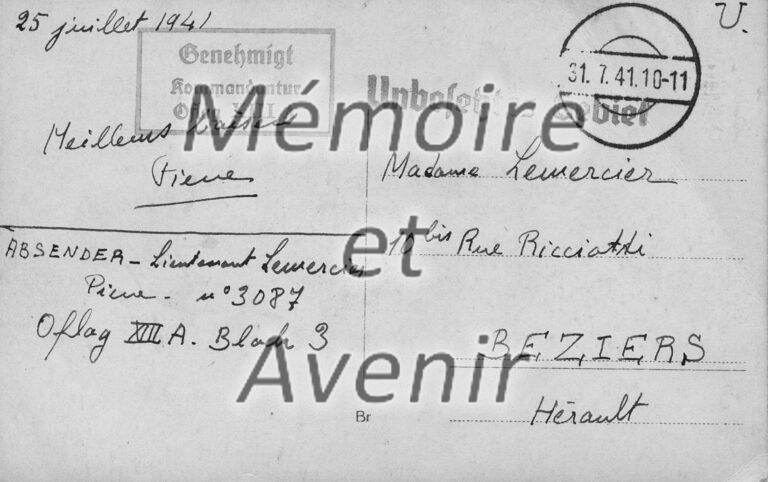 25 juillet 1941
U.
Genehmigt
Kommandantur
31.7.41.10-11
Unbesetztes Gebiet
Meilleurs
Pierre
Madame Lemercier
10 bis Rue Ricciotti
ABSENDER - Lieutenant Lemercier
Pierre - n° 3087
Oflag XIII A. Block 3
BEZIERS
Hérault
Br
Mémoire
et
Avenir